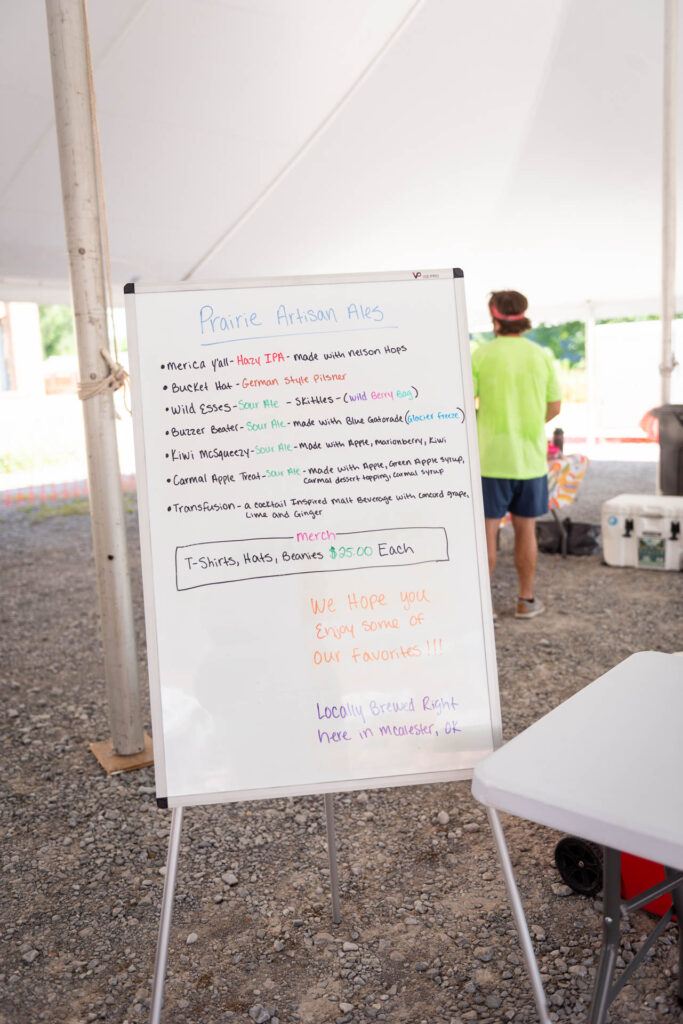 Prairie Artisan Ales
• merica y'all - Hazy IPA - made with nelson Hops
• Bucket Hat - German Style Pilsner
• Wild Esses - Sour Ale - Skittles - (wild Berry Bag)
• Buzzer Beater - Sour Ale - made with Blue Gatorade (Glacier Freeze)
• Kiwi McSqueezy - Sour Ale - Made with Apple, marionberry, Kiwi
• Carmal Apple Treat - Sour Ale - Made with Apple, Green Apple syrup,
Carmal dessert topping, carmal syrup
• Transfusion - a cocktail Inspired malt Beverage with concord grape,
Lime and Ginger
merch
T-Shirts, Hats, Beanies $25.00 Each
We Hope you
Enjoy some of
our favorites!!!
Locally Brewed Right
here in mcalester, OK